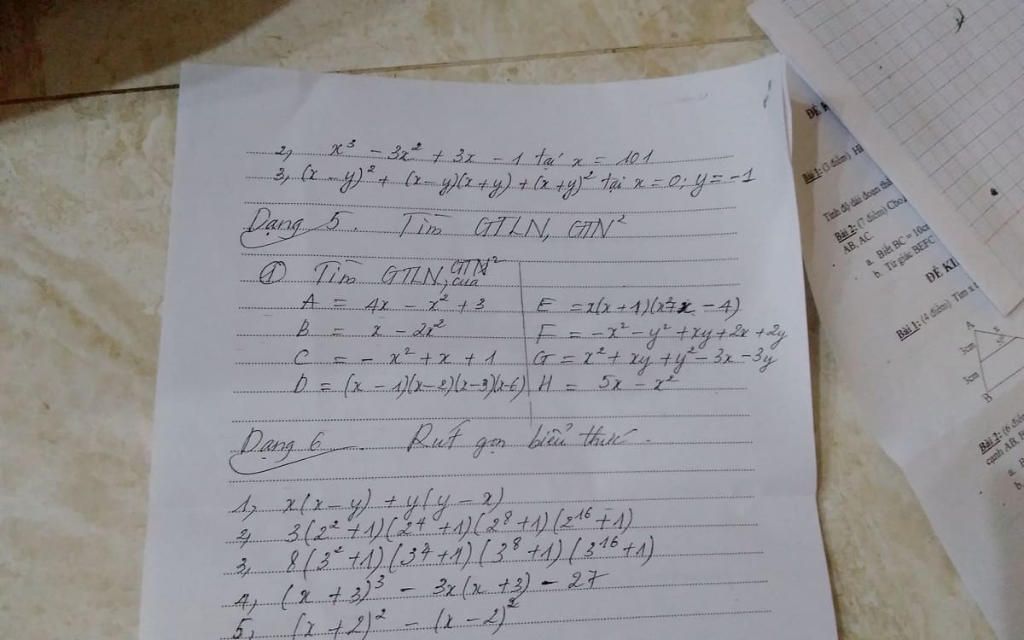 2, x³ - 3x² + 3x - 1 tại x = 101
3, (x - y)² + (x - y)(x + y) + (x + y)² tại x = 0; y = -1
Dạng 5. Tìm GTLN, GTN²
① Tìm GTLN, GTN² của
A = 4x - x² + 3
B = x - 2x²
C = - x² + x + 1
D = (x - 1)(x - 2)(x - 3)(x - 6)
E = x(x + 1)(x² + x - 4)
F = -x² - y² + xy + 2x + 2y
G = x² + xy + y² - 3x - 3y
H = 5x - x²
Dạng 6. Rút gọn biểu thức.
1, x(x - y) + y(y - x)
2, 3(2² + 1)(2⁴ + 1)(2⁸ + 1)(2¹⁶ + 1)
3, 8(3² + 1)(3⁴ + 1)(3⁸ + 1)(3¹⁶ + 1)
4, (x + 3)³ - 3x(x + 3) - 27
5, (x + 2)² - (x - 2)²
Bài 1: (3 điểm)
Tính độ dài đoạn
Bài 2: (7 điểm) Cho
AB, AC.
a. Biết BC = 10cm
b. Tứ giác BEFC
ĐỀ KI
Bài 1: (4 điểm) Tìm x
A
3cm
3cm
B
Bài 2: (6
cạnh AB,
a.
b.